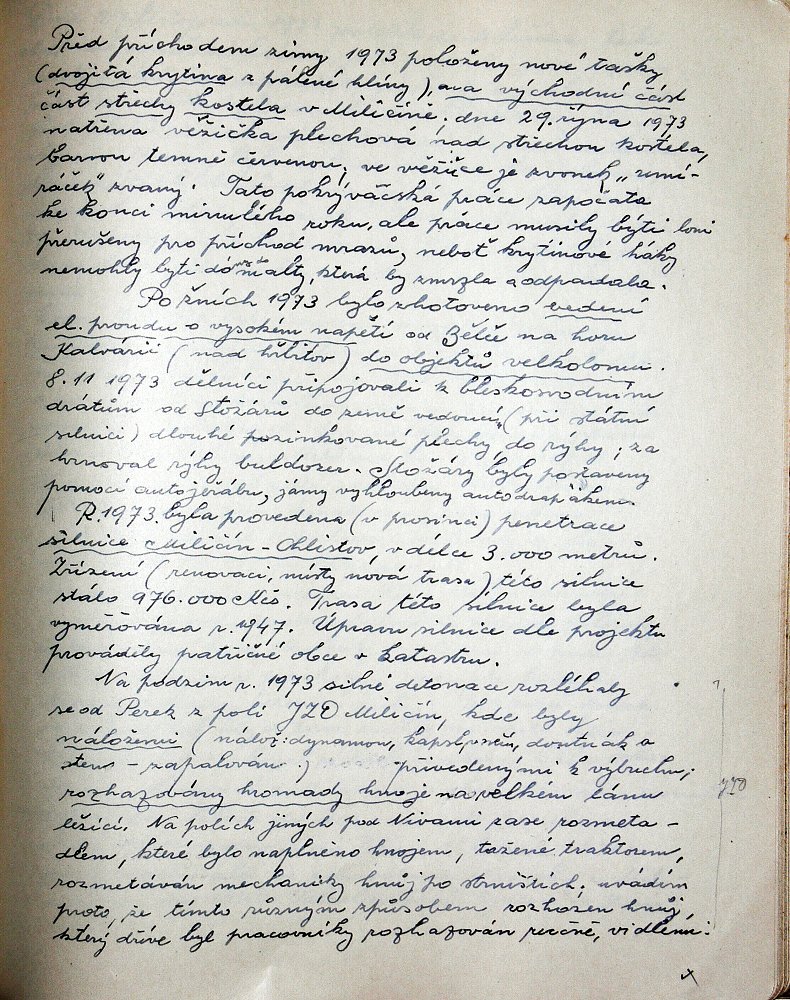 Před příchodem zimy 1973 položeny nové tašky
(dvojitá krytina z pálené hlíny), na východní část
část střechy kostela v Miličíně. dne 29. října 1973
natřena věžička plechová nad střechou kostela,
barvou temně červenou; ve věžičce je zvonek „umí-
ráček" zvaný. Tato pokrývačská práce započata
ke konci minulého roku, ale práce musily býti loni
přerušeny pro příchod mrazů, neboť krytinové háky
nemohly býti do malty, která by zmrzla a odpadala.
Po žních 1973 bylo zhotoveno vedení
el. proudu o vysokém napětí od Zělče na horu
Kalvárii (nad hřbitov) do objektů velkolomu.
8. 11 1973 dělníci připojovali k bleskosvodním
drátům od stožárů do země vedoucí, (při státní
silnici) dlouhé pozinkované plechy, do rýhy; za
hrnoval rýhy buldozer. Stožáry byly postaveny
pomocí autojeřábu, jámy vyhloubeny autodrapákem.
R. 1973. byla provedena (v prosinci) penetrace
silnice Miličín - Chlistov, v délce 3.000 metrů.
Zřízení (renovaci, místy nová trasa) této silnice
stálo 976.000 Kčs. Trasa této silnice byla
vyměřována r. 1947. Úpravu silnice dle projektu
prováděly patřičné obce v katastru.
Na podzim r. 1973 silné detonace rozléhaly
se od Perek z polí JZD Miličín, kde byly
náložemi (nálož: dynamon, kapsl, doutnák a
- zapalován .) přivedenými k výbuchu,
rozhazovány hromady hnoje na velkém lánu
ležící. Na polích jiných pod Nivami zase rozmeta-
dlem, které bylo naplněno hnojem, tažené traktorem,
rozmetáván mechanicky hnůj po strništích; uvádím
proto, že tímto různým způsobem rozhozen hnůj,
který dříve byl pracovníky rozhazován ručně, vidlemi:
JZD
x